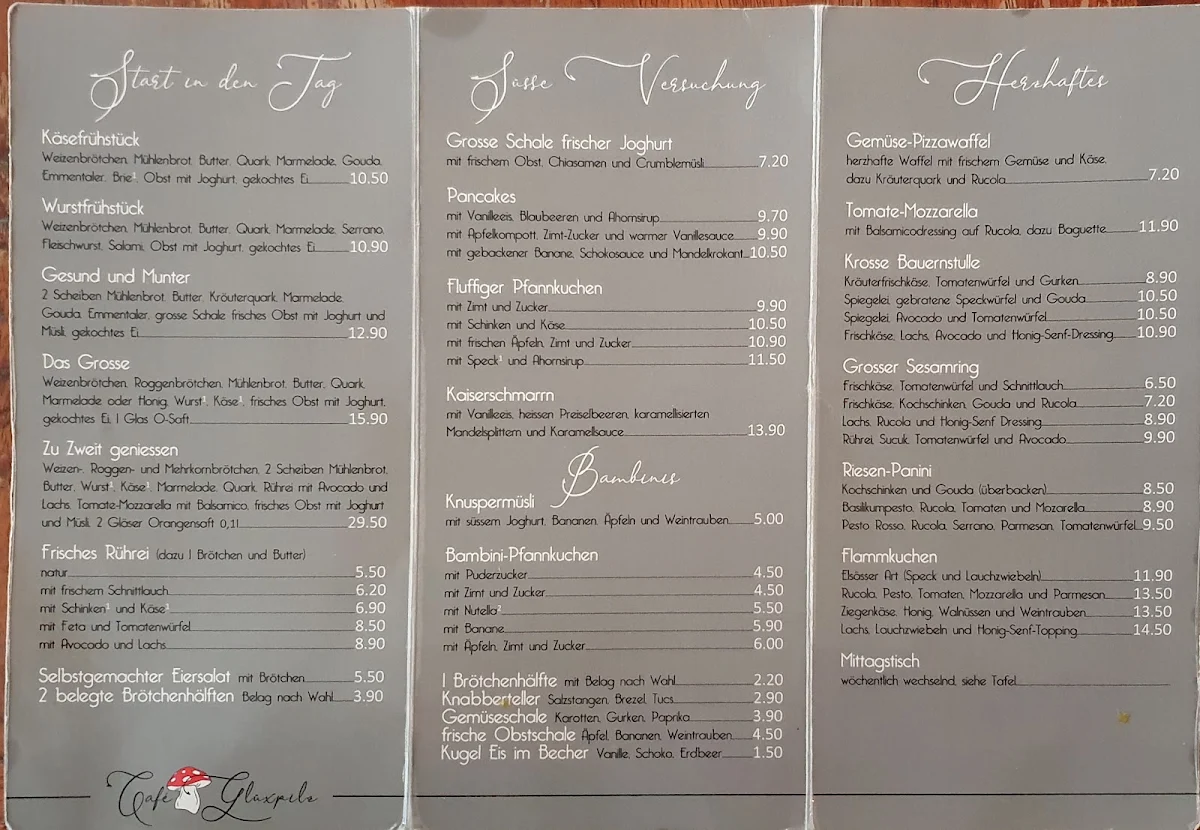 Start in den Tag
Käsefrühstück
Weizenbrötchen, Mühlenbrot, Butter, Quark, Marmelade, Gouda,
Emmentaler, Brie¹, Obst mit Joghurt, gekochtes Ei 10.50
Wurstfrühstück
Weizenbrötchen, Mühlenbrot, Butter, Quark, Marmelade, Serrano,
Fleischwurst, Salami, Obst mit Joghurt, gekochtes Ei 10.90
Gesund und Munter
2 Scheiben Mühlenbrot, Butter, Kräuterquark, Marmelade,
Gouda, Emmentaler, grosse Schale frisches Obst mit Joghurt und
Müsli, gekochtes Ei 12.90
Das Grosse
Weizenbrötchen, Roggenbrötchen, Mühlenbrot, Butter, Quark,
Marmelade oder Honig, Wurst¹, Käse¹, frisches Obst mit Joghurt,
gekochtes Ei, 1 Glas O-Saft 15.90
Zu Zweit geniessen
Weizen-, Roggen- und Mehrkornbrötchen, 2 Scheiben Mühlenbrot,
Butter, Wurst¹, Käse¹, Marmelade, Quark, Rührei mit Avocado und
Lachs, Tomate-Mozzarella mit Balsamico, frisches Obst mit Joghurt
und Müsli, 2 Gläser Orangensaft 0,1l 29.50
Frisches Rührei (dazu 1 Brötchen und Butter)
natur 5.50
mit frischem Schnittlauch 6.20
mit Schinken¹ und Käse¹ 6.90
mit Feta und Tomatenwürfel 8.50
mit Avocado und Lachs 8.90
Selbstgemachter Eiersalat mit Brötchen 5.50
2 belegte Brötchenhälften Belag nach Wahl 3.90
Café Glüxpilz
Süsse Versuchung
Grosse Schale frischer Joghurt
mit frischem Obst, Chiasamen und Crumblemüsli 7.20
Pancakes
mit Vanilleeis, Blaubeeren und Ahornsirup 9.70
mit Apfelkompott, Zimt-Zucker und warmer Vanillesauce 9.90
mit gebackener Banane, Schokosauce und Mandelkrokant 10.50
Fluffiger Pfannkuchen
mit Zimt und Zucker 9.90
mit Schinken und Käse 10.50
mit frischen Äpfeln, Zimt und Zucker 10.90
mit Speck¹ und Ahornsirup 11.50
Kaiserschmarrn
mit Vanilleeis, heissen Preiselbeeren, karamellisierten
Mandelsplittern und Karamellsauce 13.90
Bambinis
Knuspermüsli
mit süssem Joghurt, Bananen, Äpfeln und Weintrauben 5.00
Bambini-Pfannkuchen
mit Puderzucker 4.50
mit Zimt und Zucker 4.50
mit Nutella² 5.50
mit Banane 5.90
mit Äpfeln, Zimt und Zucker 6.00
1 Brötchenhälfte mit Belag nach Wahl 2.20
Knabberteller Salzstangen, Brezel, Tucs 2.90
Gemüseschale Karotten, Gurken, Paprika 3.90
frische Obstschale Äpfel, Bananen, Weintrauben 4.50
Kugel Eis im Becher Vanille, Schoko, Erdbeer 1.50
Herzhaftes
Gemüse-Pizzawaffel
herzhafte Waffel mit frischem Gemüse und Käse,
dazu Kräuterquark und Rucola 7.20
Tomate-Mozzarella
mit Balsamicodressing auf Rucola, dazu Baguette 11.90
Krosse Bauernstulle
Kräuterfrischkäse, Tomatenwürfel und Gurken 8.90
Spiegelei, gebratene Speckwürfel und Gouda 10.50
Spiegelei, Avocado und Tomatenwürfel 10.50
Frischkäse, Lachs, Avocado und Honig-Senf-Dressing 10.90
Grosser Sesamring
Frischkäse, Tomatenwürfel und Schnittlauch 6.50
Frischkäse, Kochschinken, Gouda und Rucola 7.20
Lachs, Rucola und Honig-Senf Dressing 8.90
Rührei, Sucuk, Tomatenwürfel und Avocado 9.90
Riesen-Panini
Kochschinken und Gouda (überbacken) 8.50
Basilikumpesto, Rucola, Tomaten und Mozarella 8.90
Pesto Rosso, Rucola, Serrano, Parmesan, Tomatenwürfel 9.50
Flammkuchen
Elsässer Art (Speck und Lauchzwiebeln) 11.90
Rucola, Pesto, Tomaten, Mozzarella und Parmesan 13.50
Ziegenkäse, Honig, Walnüssen und Weintrauben 13.50
Lachs, Lauchzwiebeln und Honig-Senf-Topping 14.50
Mittagstisch
wöchentlich wechselnd, siehe Tafel